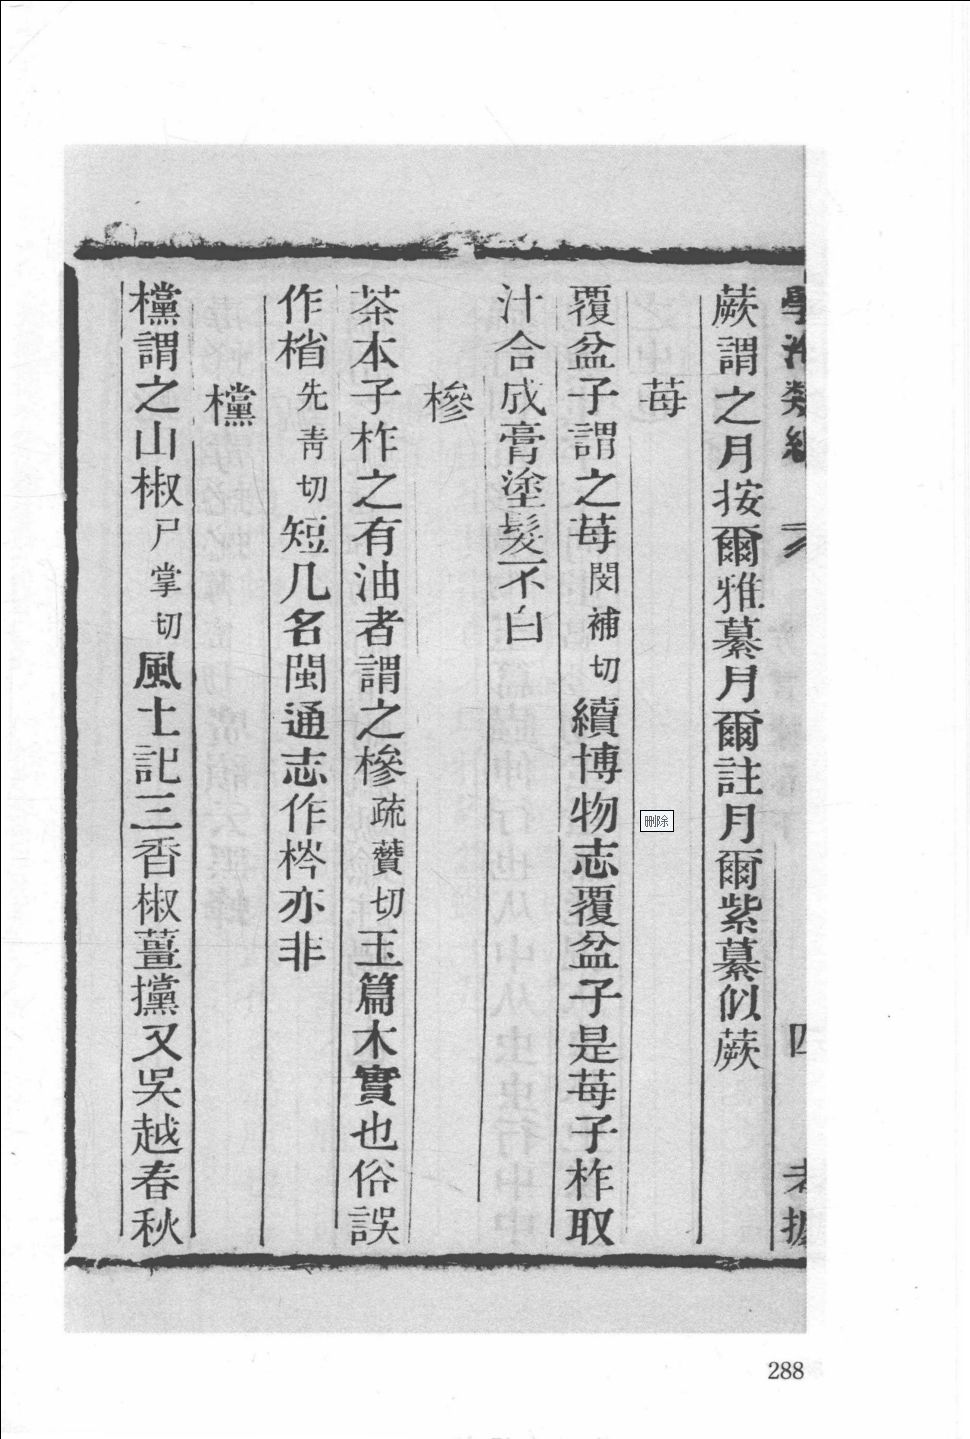 學海類編 四 考據
蕨謂之月按爾雅藄月爾註月爾紫藄似蕨
苺
覆盆子謂之苺閔補切續博物志覆盆子是苺子柞取
汁合成膏塗髮不白
槮
茶本子柞之有油者謂之槮疏蠶切玉篇木實也俗誤
作楷先靑切短几名閩通志作梣亦非
欓
欓謂之山椒尸掌切風土記三香椒薑攩又吳越春秋
删除
288